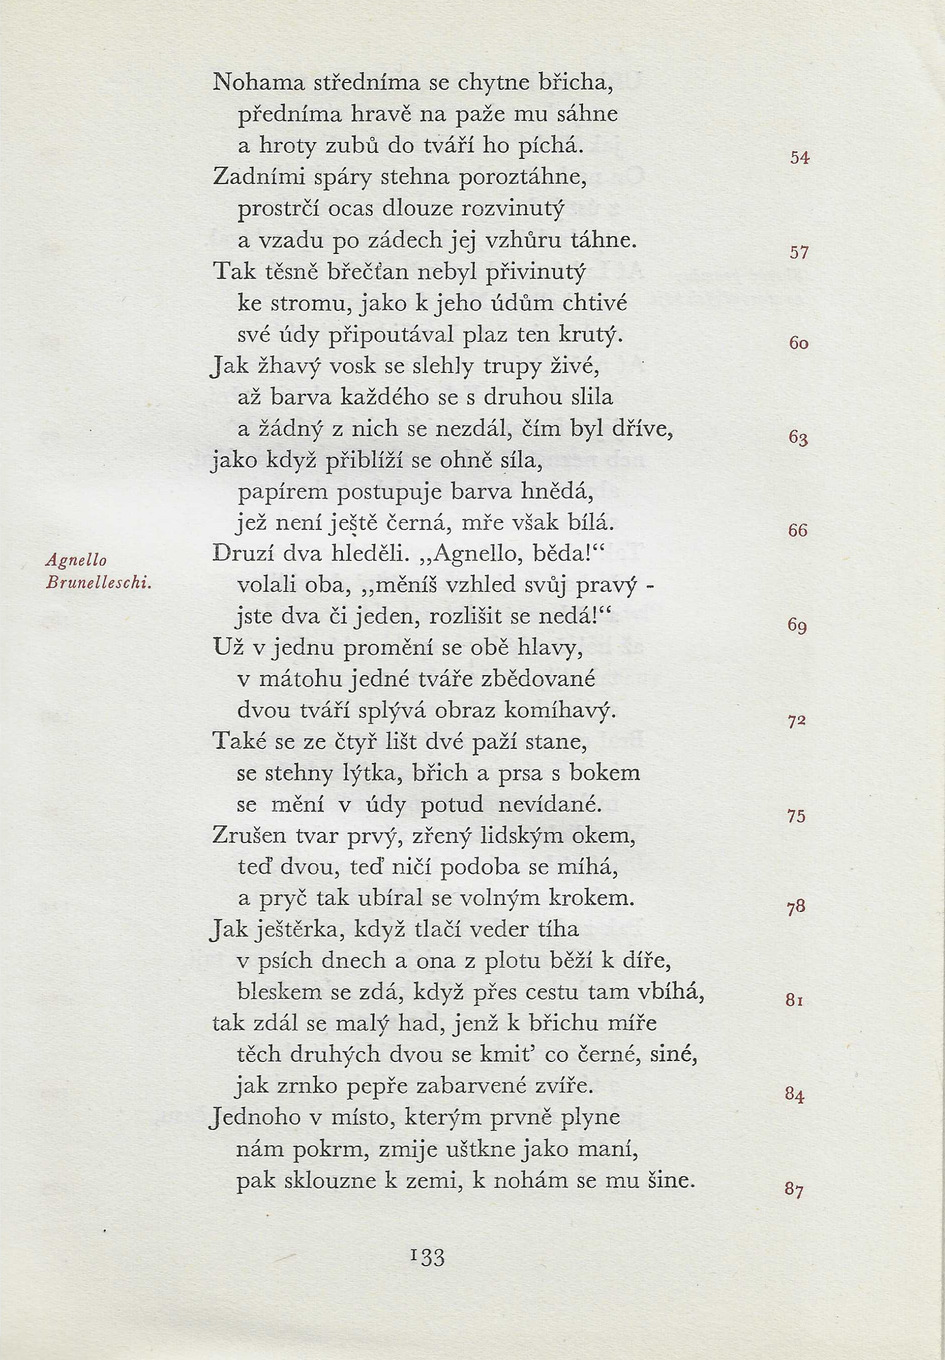 Nohama středníma se chytne břicha,
předníma hravě na paže mu sáhne
a hroty zubů do tváří ho píchá.
54
Zadními spáry stehna poroztáhne,
prostrčí ocas dlouze rozvinutý
a vzadu po zádech jej vzhůru táhne.
57
Tak těsně břečťan nebyl přivinutý
ke stromu, jako k jeho údům chtivé
své údy připoutával plaz ten krutý.
60
Jak žhavý vosk se slehly trupy živé,
až barva každého se s druhou slila
a žádný z nich se nezdál, čím byl dříve,
63
jako když přiblíží se ohně síla,
papírem postupuje barva hnědá,
jež není ještě černá, mře však bílá.
66
Agnello
Brunelleschi.
Druzí dva hleděli. „Agnello, běda!“
volali oba, „měníš vzhled svůj pravý -
jste dva či jeden, rozlišit se nedá!“
69
Už v jednu promění se obě hlavy,
v mátohu jedné tváře zbědované
dvou tváří splývá obraz komíhavý.
72
Také se ze čtyř lišt dvé paží stane,
se stehny lýtka, břich a prsa s bokem
se mění v údy potud nevídané.
75
Zrušen tvar prvý, zřený lidským okem,
teď dvou, teď ničí podoba se míhá,
a pryč tak ubíral se volným krokem.
78
Jak ještěrka, když tlačí veder tíha
v psích dnech a ona z plotu běží k díře,
bleskem se zdá, když přes cestu tam vbíhá,
81
tak zdál se malý had, jenž k břichu míře
těch druhých dvou se kmit’ co černé, siné,
jak zrnko pepře zabarvené zvíře.
84
Jednoho v místo, kterým prvně plyne
nám pokrm, zmije uštkne jako maní,
pak sklouzne k zemi, k nohám se mu šine.
87
133